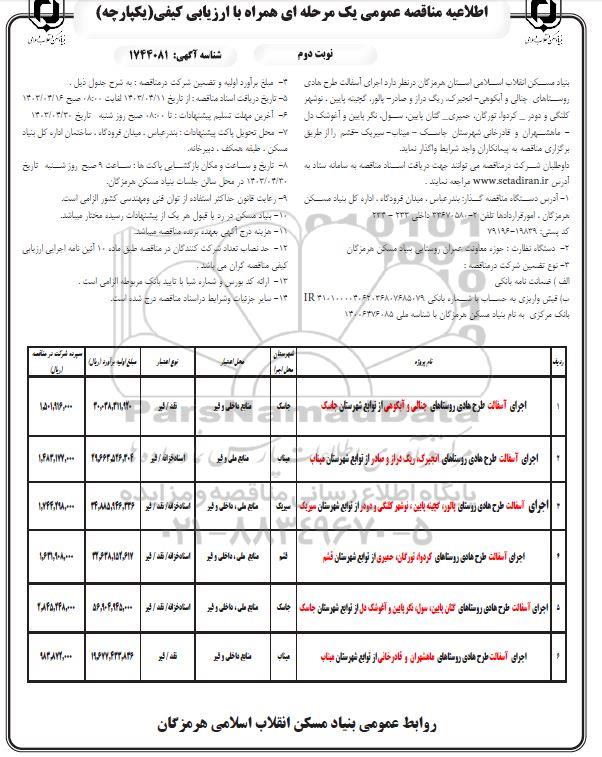 اطلاعیه مناقصه عمومی یک مرحله ای همراه با ارزیابی کیفی(یکپارچه)
نوبت دوم
شناسه آگهی: ۱۷۴۴۰۸۱
بنیاد مسکن انقلاب اسلامی استان هرمزگان درنظر دارد اجرای آسفالت طرح هادی
روستاهای چنالی و آبکوهی- انجیرک، ریگ دراز و صادر- پالور، کجینه پایین، نوشهر
کلنگی و دودر _ کردوا، تورگان، حمیری_ گتان پایین، سول، نگر پایین و آغوشک دل
- ماهشهران و قادرخانی شهرستان جاسک - میناب- سیریک -قشم را از طریق
برگزاری مناقصه به پیمانکاران واجد شرایط واگذار نماید.
داوطلبان شرکت درمناقصه می توانند جهت دریافت اسناد مناقصه به سامانه ستاد به
آدرس www.setadiran.ir مراجعه نمایند .
۱- آدرس دستگاه مناقصه گذار: بندرعباس ، میدان فرودگاه ، اداره کل بنیاد مسکن
هرمزگان ، امورقراردادها تلفن ۲-۳۳۶۷۰۵۸۰ داخلی ۲۳۳ - ۲۳۴
کد پستی: ۱۹۸۳۹-۷۹۱۹۶
۲- دستگاه نظارت : حوزه معاونت عمران روستایی بنیاد مسکن هرمزگان
۳- نوع تضمین شرکت درمناقصه :
الف ) ضمانت نامه بانکی
ب) فیش واریزی به حساب با شماره بانکی IR ۳۱۰۱۰۰۰۰۴۰۶۲۰۳۶۸۰۷۶۸۵۰۷۹
بانک مرکزی به نام بنیاد مسکن هرمزگان با شناسه ملی ۱۴۰۰۶۴۷۶۰۸۵
۴- مبلغ برآورد اولیه و تضمین شرکت درمناقصه : به شرح جدول ذیل .
۵- تاریخ دریافت اسناد مناقصه : از تاریخ ۱۴۰۳/۰۴/۱۱ لغایت ۰۸:۰۰ صبح ۱۴۰۳/۰۴/۱۶
۶- آخرین مهلت تسلیم پیشنهادات : تا ۰۸:۰۰ صبح روز شنبه تاریخ ۱۴۰۳/۰۴/۳۰
۷- محل تحویل پاکت پیشنهادات : بندرعباس ، میدان فرودگاه ، ساختمان اداره کل بنیاد
مسکن ، طبقه همکف ، دبیرخانه.
۸- تاریخ و ساعت و مکان بازگشایی پاکت ها : ساعت ۹ صبح روز شنبه تاریخ
۱۴۰۳/۰۴/۳۰ در محل سالن جلسات بنیاد مسکن هرمزگان.
۹- رعایت قانون حداکثر استفاده از توان فنی ومهندسی کشور الزامی است.
۱۰- بنیاد مسکن در رد یا قبول هر یک از پیشنهادات رسیده مختار میباشد.
۱۱- هزینه درج آگهی بعهده برنده مناقصه میباشد.
۱۲- حد نصاب تعداد شرکت کنندگان در مناقصه طبق ماده ۱۰ آئین نامه اجرایی ارزیابی
کیفی مناقصه گران می باشد .
۱۳- ارائه کد بورس و شماره شبا با تایید بانک مربوطه الزامی است .
۱۴- سایر جزئیات وشرایط دراسناد مناقصه درج شده است.
ردیف نام پروژه شهرستان محل اجرا محل اعتبار نوع اعتبار مبلغ اولیه برآورد (ریال) سپرده شرکت در مناقصه (ریال)
۱ اجرای آسفالت طرح هادی روستاهای چنالی و آبکوهی از توابع شهرستان جاسک جاسک منابع داخلی و قیر نقد / قیر ۳۰,۰۳۸,۳۱۱,۹۲۰ ۱,۵۰۱,۹۱۶,۰۰۰
۲ اجرای آسفالت طرح هادی روستاهای انجیرک، ریگ دراز و صادر از توابع شهرستان میناب میناب منابع ملی و قیر اسنادخزانه / قیر ۲۹,۶۶۳,۵۲۶,۳۰۴ ۱,۴۸۳,۱۷۷,۰۰۰
۳ اجرای آسفالت طرح هادی روستای پالور، کجینه پایین ، نوشهر کلنگی و دودر از توابع شهرستان سیریک سیریک منابع ملی ، داخلی و قیر اسنادخزانه/ نقد / قیر ۳۴,۸۸۵,۹۴۶,۳۳۶ ۱,۷۴۴,۲۹۸,۰۰۰
۴ اجرای آسفالت طرح هادی روستاهای کردوا، تورگان، حمیری از توابع شهرستان قشم قشم منابع ملی ، داخلی و قیر اسنادخزانه/ نقد / قیر ۳۲,۶۳۸,۱۵۲,۶۱۷ ۱,۶۳۱,۹۰۸,۰۰۰
۵ اجرای آسفالت طرح هادی روستاهای گتان پایین، سول، نگر پایین و آغوشک دل از توابع شهرستان جاسک جاسک منابع ملی ، داخلی و قیر اسنادخزانه/ نقد / قیر ۵۶,۹۰۴,۹۴۵,۰۰۰ ۲,۸۴۵,۲۴۸,۰۰۰
۶ اجرای آسفالت طرح هادی روستاهای ماهشهران و قادرخانی از توابع شهرستان میناب میناب منابع داخلی و قیر نقد / قیر ۱۹,۶۷۷,۴۳۳,۸۳۶ ۹۸۳,۸۷۲,۰۰۰
ParsNamadData
پایگاه اطلاع رسانی مناقصه و مزایده
۰۲۱-۸۸۳۴۹۶۷۰-۵
روابط عمومی بنیاد مسکن انقلاب اسلامی هرمزگان